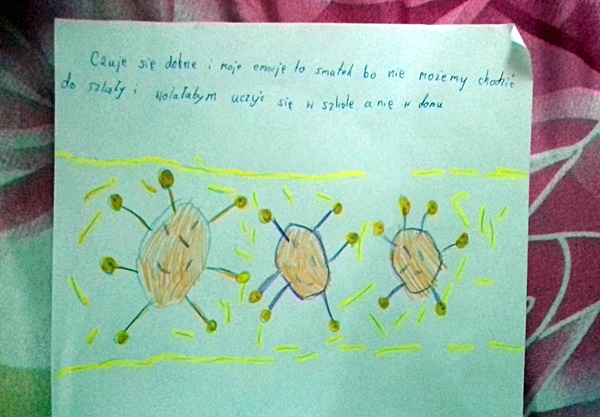 Czuje się dobrze i moje emocje to smutek bo nie możemy chodzić
do szkoły i wolałabym uczyć się w szkole a nie w domu